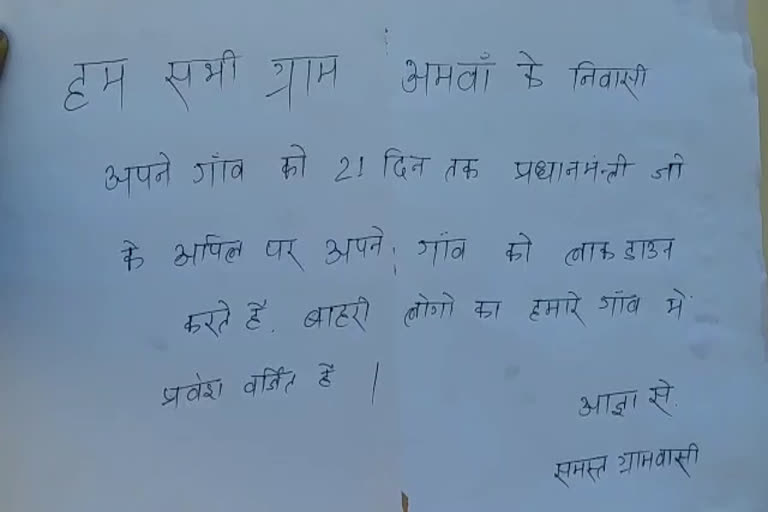 हम सभी ग्राम अमवाँ के निवासी
अपने गाँव को 21 दिन तक प्रधानमंत्री जी
के अपिल पर अपने गाँव को लाकडाउन
करते है. बाहरी लोगो का हमारे गाँव में
प्रवेश वर्जित है |
आज्ञा से.
समस्त ग्रामवासी